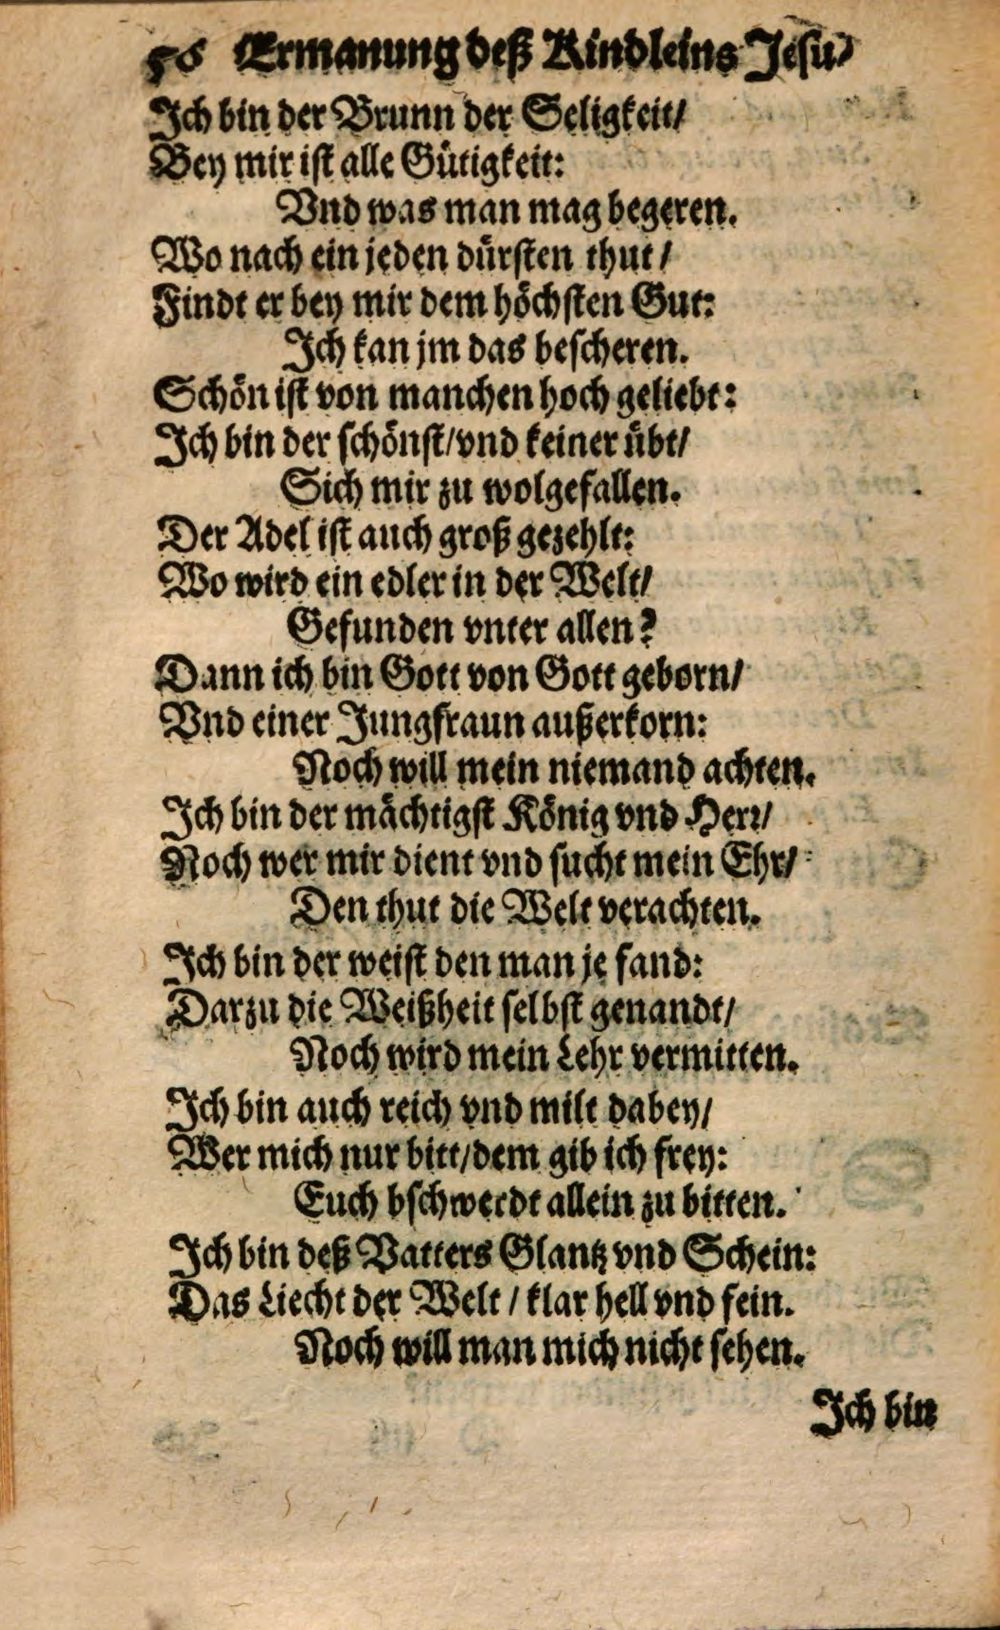 56 Ermanung deß Kindleins Jesu/
Ich bin der Brunn der Seligkeit/
Bey mir ist alle Gütigkeit:
Vnd was man mag begeren.
Wo nach ein jeden dürsten thut/
Findt er bey mir dem höchsten Gut:
Ich kan jm das bescheren.
Schön ist von manchen hoch geliebt:
Ich bin der schönst/vnd keiner übt/
Sich mir zu wolgefallen.
Der Adel ist auch groß gezehlt:
Wo wird ein edler in der Welt/
Gefunden vnter allen?
Dann ich bin Gott von Gott geborn/
Vnd einer Jungfraun außerkorn:
Noch will mein niemand achten.
Ich bin der mächtigst König vnd Herr/
Noch wer mir dient vnd sucht mein Ehr/
Den thut die Welt verachten.
Ich bin der weist den man je fand:
Darzu die Weißheit selbst genandt/
Noch wird mein Lehr vermitten.
Ich bin auch reich vnd milt dabey/
Wer mich nur bitt/dem gib ich frey:
Euch bschwerdt allein zu bitten.
Ich bin deß Vatters Glantz vnd Schein:
Das Liecht der Welt / klar hell vnd fein.
Noch will man mich nicht sehen.
Ich bin